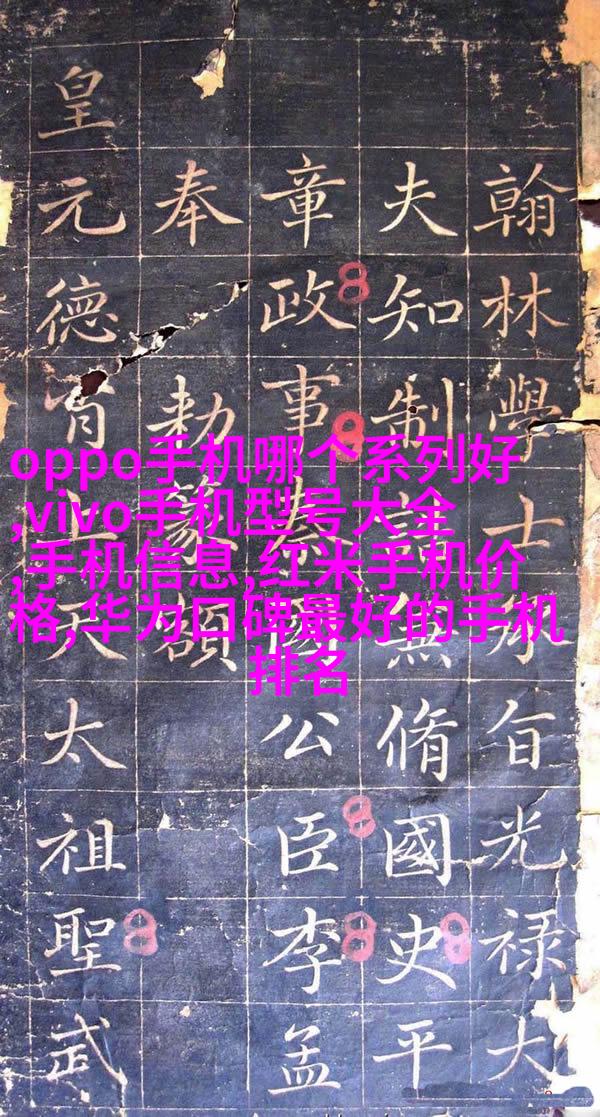 翰林學士承旨光禄大
夫知制誥無脩國史平
章政事秦國公臣李孟
奉敕篆額
皇元德育天太祖聖武
oppo手机哪个系列好
,vivo手机型号大全
,手机信息,红米手机价
格,华为口碑最好的手机
排名